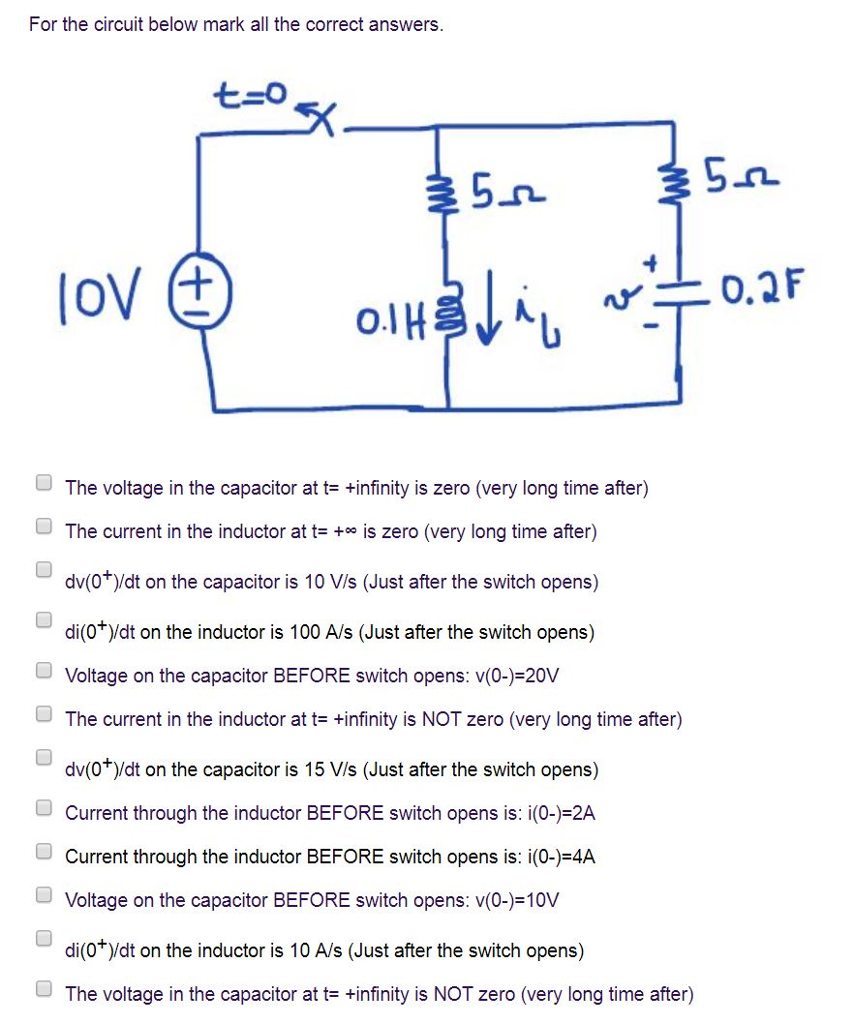 For the circuit below mark all the correct answers.
t=0
5Ω
5Ω
10V
+
−
0.1H
i_L
v
+
−
0.2F
The voltage in the capacitor at t= +infinity is zero (very long time after)
The current in the inductor at t= +∞ is zero (very long time after)
dv(0⁺)/dt on the capacitor is 10 V/s (Just after the switch opens)
di(0⁺)/dt on the inductor is 100 A/s (Just after the switch opens)
Voltage on the capacitor BEFORE switch opens: v(0-)=20V
The current in the inductor at t= +infinity is NOT zero (very long time after)
dv(0⁺)/dt on the capacitor is 15 V/s (Just after the switch opens)
Current through the inductor BEFORE switch opens is: i(0-)=2A
Current through the inductor BEFORE switch opens is: i(0-)=4A
Voltage on the capacitor BEFORE switch opens: v(0-)=10V
di(0⁺)/dt on the inductor is 10 A/s (Just after the switch opens)
The voltage in the capacitor at t= +infinity is NOT zero (very long time after)